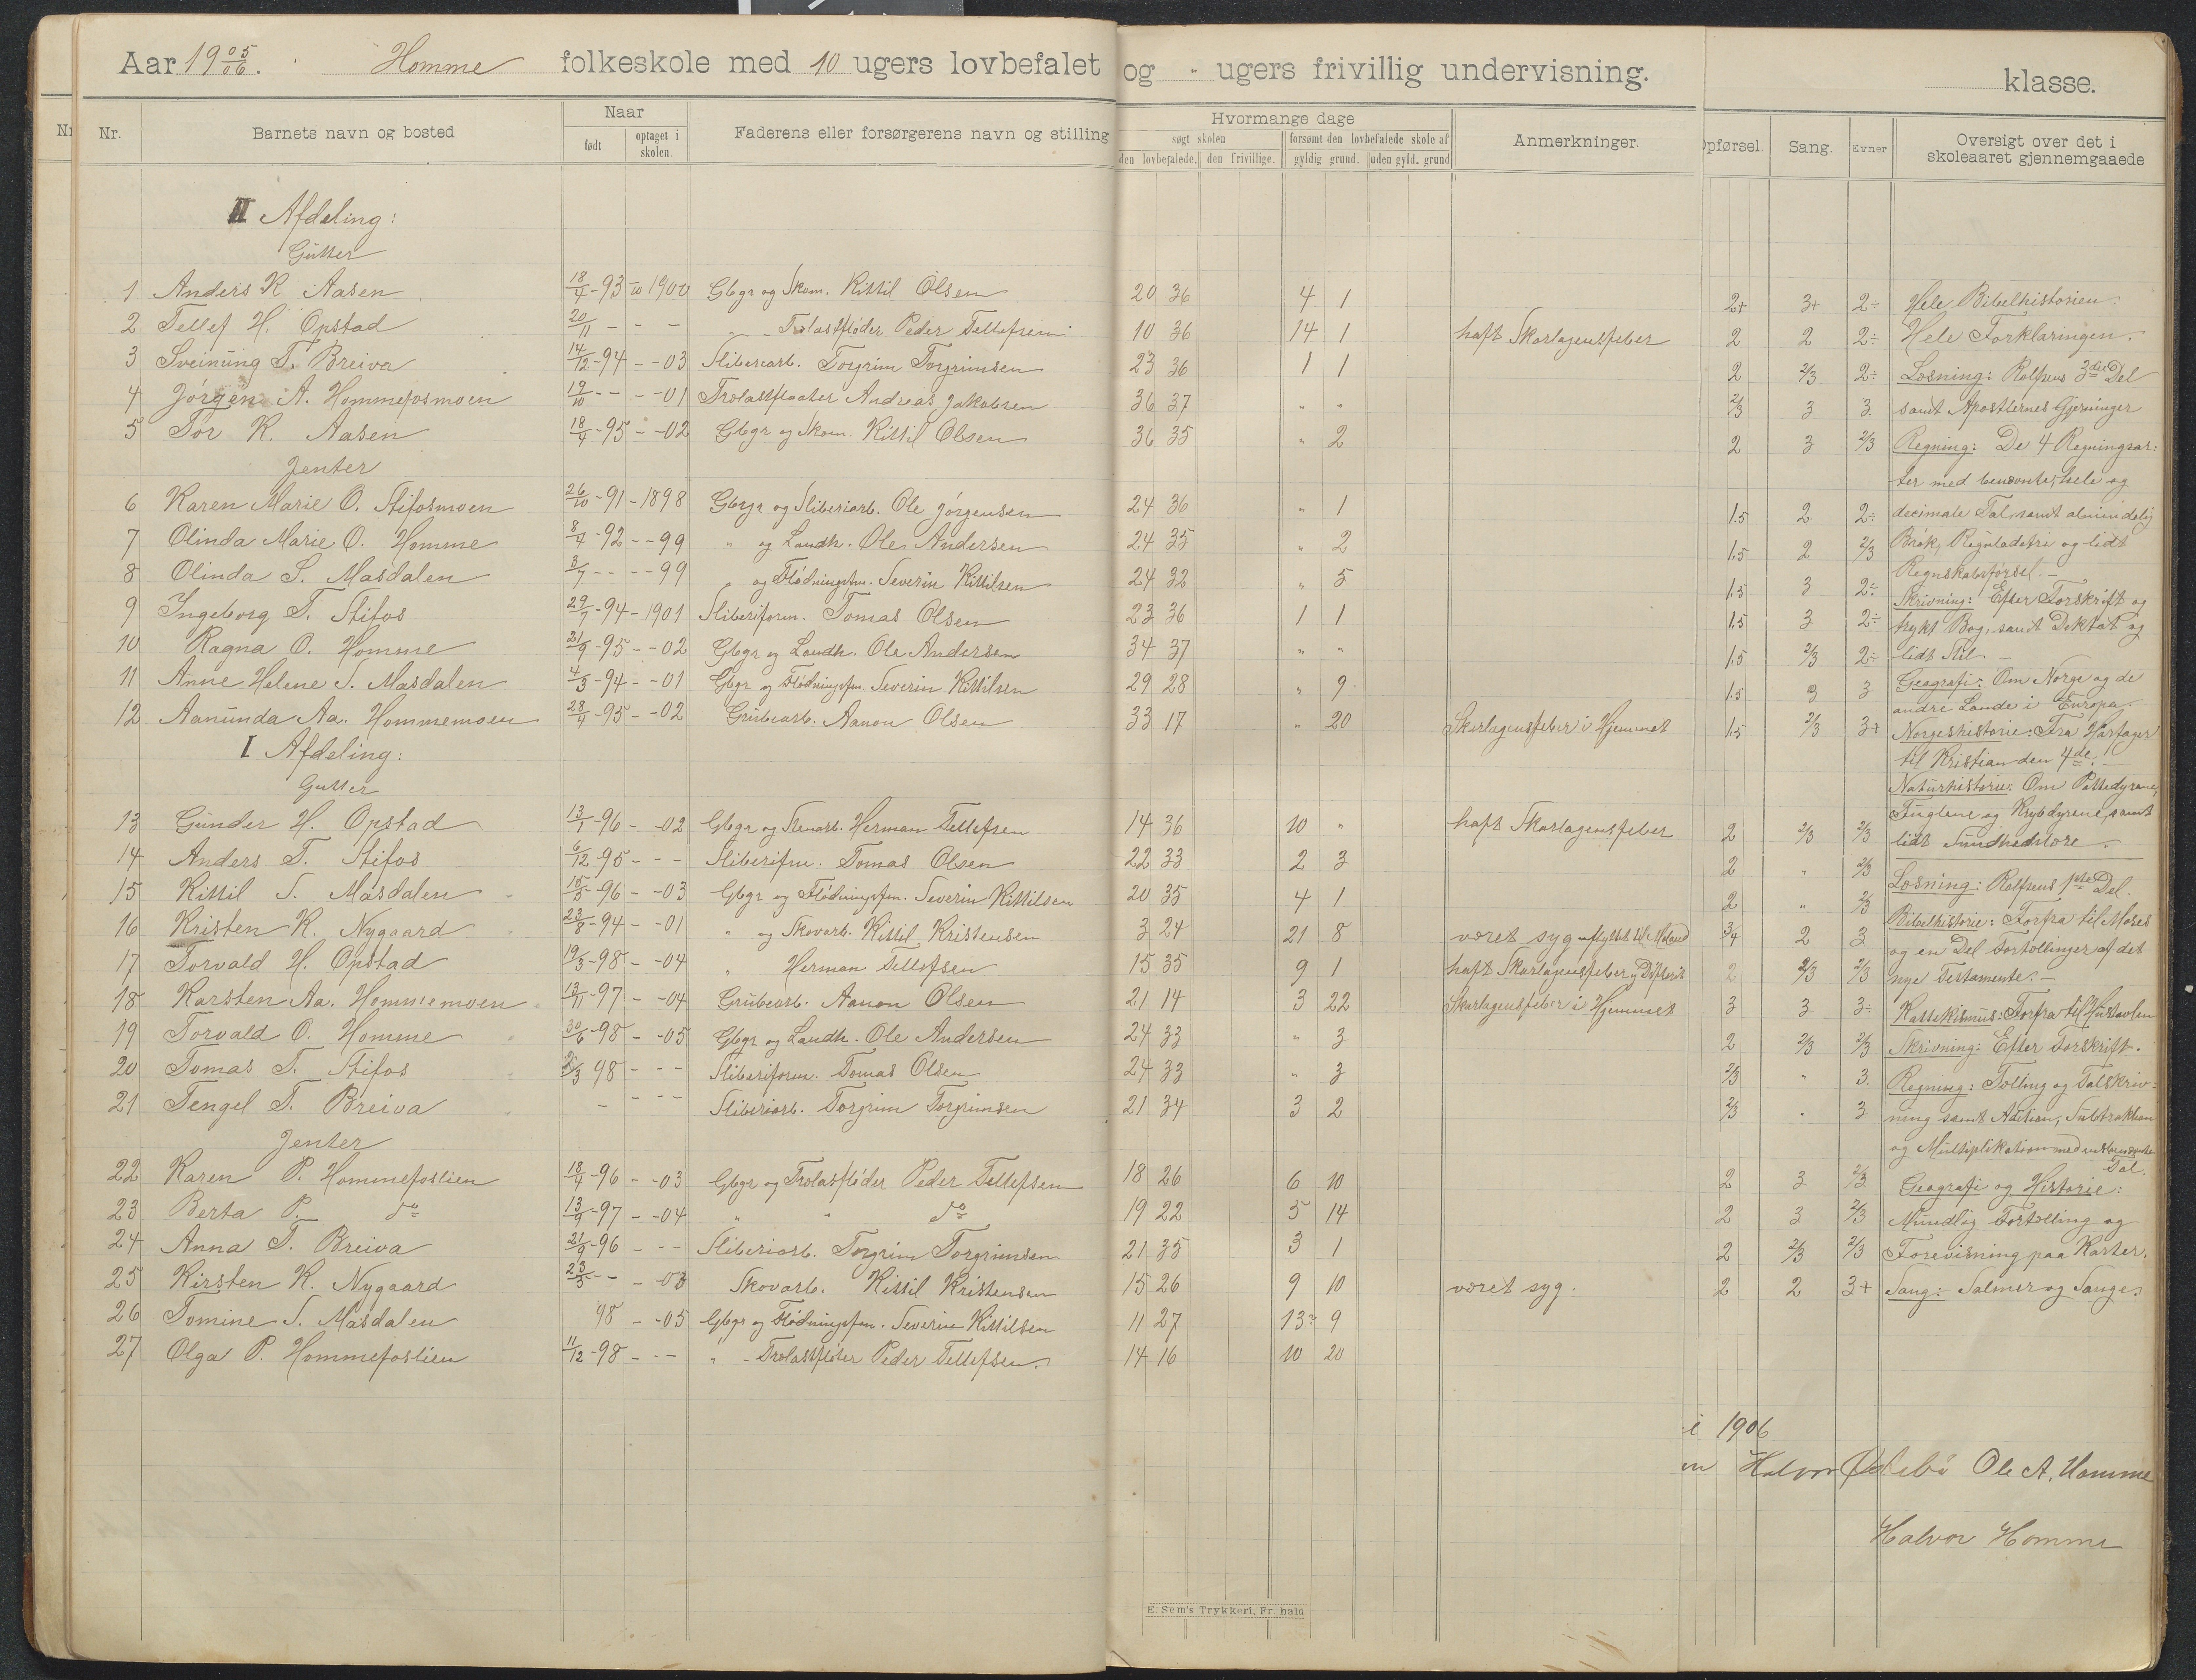 Aar 1905/06. Homme folkeskole med 10 ugers lovbefalet og - ugers frivillig undervisning. klasse.
Nr. Barnets navn og bosted Naar født optaget i skolen. Faderens eller forsørgerens navn og stilling Hvormange dage søgt skolen den lovbefalede. den frivillige. forsømt den lovbefalede skole af gyldig grund. uden gyld. grund Anmerkninger. Opførsel. Sang. Evner Oversigt over det i skoleaaret gjennemgaaede
II Afdeling:
Gutter
1 Anders K. Aasen 18/4-93 1900 Gbgr og Skom. Kittil Olsen 20 36 4 1 2+ 3+ 2÷
2 Tellef H. Opstad 20/11 - - - " - Trælastfløder Peder Tellefsen 10 36 14 1 haft Skarlagensfeber 2 2 2÷
3 Sveinung T. Breiva 14/12-94 - -03 Sliberiarb. Torgrim Torgrimsen 23 36 1 1 2 2/3 2÷
4 Jørgen A. Hommefosmoen 19/10 - - - -01 Trælastfløater Andreas Jakobsen 36 37 " " 2/3 3 3.
5 Tor K. Aasen 18/4-95 - -02 Gbgr og Skom. Kittil Olsen 36 35 " 2 2 3 2/3
Jenter
6 Karen Marie O. Stifosmoen 26/10-91-1898 Gbgr og Sliberiarb. Ole Jørgensen 24 36 " 1 1.5 2 2÷
7 Olinda Marie O. Homme 8/4-92 - -99 " og Landh. Ole Andersen 24 35 " 2 1.5 2 2/3
8 Olinda S. Masdalen 3/7 - - - -99 " og Flødningsfm. Severin Kittilsen 24 32 " 5 1.5 3 2÷
9 Ingeborg T. Stifos 29/7-94-1901 Sliberiform. Tomas Olsen 23 36 1 1 1.5 3 2÷
10 Ragna O. Homme 21/9-95 - -02 Gbgr og Landh. Ole Andersen 34 37 " " 1.5 2/3 2÷
11 Anne Helene S. Masdalen 4/3-94 - -01 Gbgr og Flødningsfm. Severin Kittilsen 29 28 " 9 1.5 3 3
12 Aanunda Aa. Hommemoen 28/4-95 - -02 Grubearb. Aanon Olsen 33 17 " 20 Skarlagensfeber i Hjemmet 1.5 2/3 3+
I Afdeling:
Gutter
13 Gunder H. Opstad 13/1-96 - -02 Gbgr og Herman Tellefsen 14 36 10 " haft Skarlagensfeber 2 2/3 2/3
14 Anders T. Stifos 6/12-95 - - - Sliberifm. Tomas Olsen 22 33 2 3 2 " 2/3
15 Kittil S. Masdalen 15/5-96 - -03 Gbgr og Flødningsfm. Severin Kittilsen 20 35 4 1 2 " 2/3
16 Kristen K. Nygaard 23/8-94 - -01 " og Skovarb. Kittil Kristensen 3 24 21 8 været syg - flyttet til 3/4 2 3
17 Torvald H. Opstad 19/3-98 - -04 " Herman Tellefsen 15 35 9 1 haft Skarlagensfeber og Difterit 2 2/3 2/3
18 Karsten Aa. Hommemoen 13/11-97 - -04 Grubearb. Aanon Olsen 21 14 3 22 Skarlagensfeber i Hjemmet 3 3 3÷
19 Torvald O. Homme 30/6-98 - -05 Gbgr og Landh. Ole Andersen 24 33 " 3 2 2/3 2/3
20 Tomas T. Stifos 98 - - - Sliberiform. Tomas Olsen 24 33 " 3 2/3 " 3.
21 Tengel T. Breiva - - - - Sliberiarb. Torgrim Torgrimsen 21 34 3 2 2/3 " 3
Jenter
22 Karen P. Hommefoslien 18/4-96 - -03 Gbgr og Trælastfløder Peder Tellefsen 18 26 6 10 2 3 2/3
23 Berta P. do 13/9-97 - -04 " " do 19 22 5 14 2 3 2/3
24 Anna T. Breiva 21/9-96 - - - Sliberiarb. Torgrim Torgrimsen 21 35 3 1 2 2/3 2/3
25 Kirsten K. Nygaard 23/5 - - -03 Skovarb. Kittil Kristensen 15 26 9 10 været syg. 2 2 3+
26 Tomine S. Masdalen 98 - -05 Gbgr og Flødningsfm. Severin Kittilsen 11 27 13 9
27 Olga P. Hommefoslien 11/12-98 - - - " - Trælastfløter Peder Tellefsen. 14 16 10 20
Hele Bibelhistorien.
Hele Forklaringen.
Læsning: Rolfsens 3die Del
samt Apostlernes Gjerninger
Regning: De 4 Regningsar-
ter med benævnte, hele og
decimale Tal, samt almindelig
Brøk, Reguladetri og lidt
Regnskabsførsel. -
Skrivning: Efter Forskrift og
trykt Bog, samt Diktat og
lidt Stil -
Geografi: Om Norge og de
andre Lande i Europa.
Norgeshistorie: Fra Harfager
til Kristian den 4de. -
Naturhistorie: Om Pattedyrene,
Fuglene og Krybdyrene, samt
lidt Sundhedslære.
Læsning: Rolfsens 1ste Del.
Bibelhistorie: Forfra til Moses
og en Del Fortællinger af det
nye Testamente. -
Katekismus: Forfra til Hustavlen
Skrivning: Efter Forskrift.
Regning: Tælling og Talskriv-
ning samt Adition, Subtraktion
og Multiplikation med ubenævnte
Tal.
Geografi og Historie:
Mundlig Fortælling og
Forevisning paa Karter.
Sang: Salmer og Sange.
i 1906
en Halvor Østebø Ole A. Homme
Halvor Homme
E. Sem's Trykkeri, Fr. hald